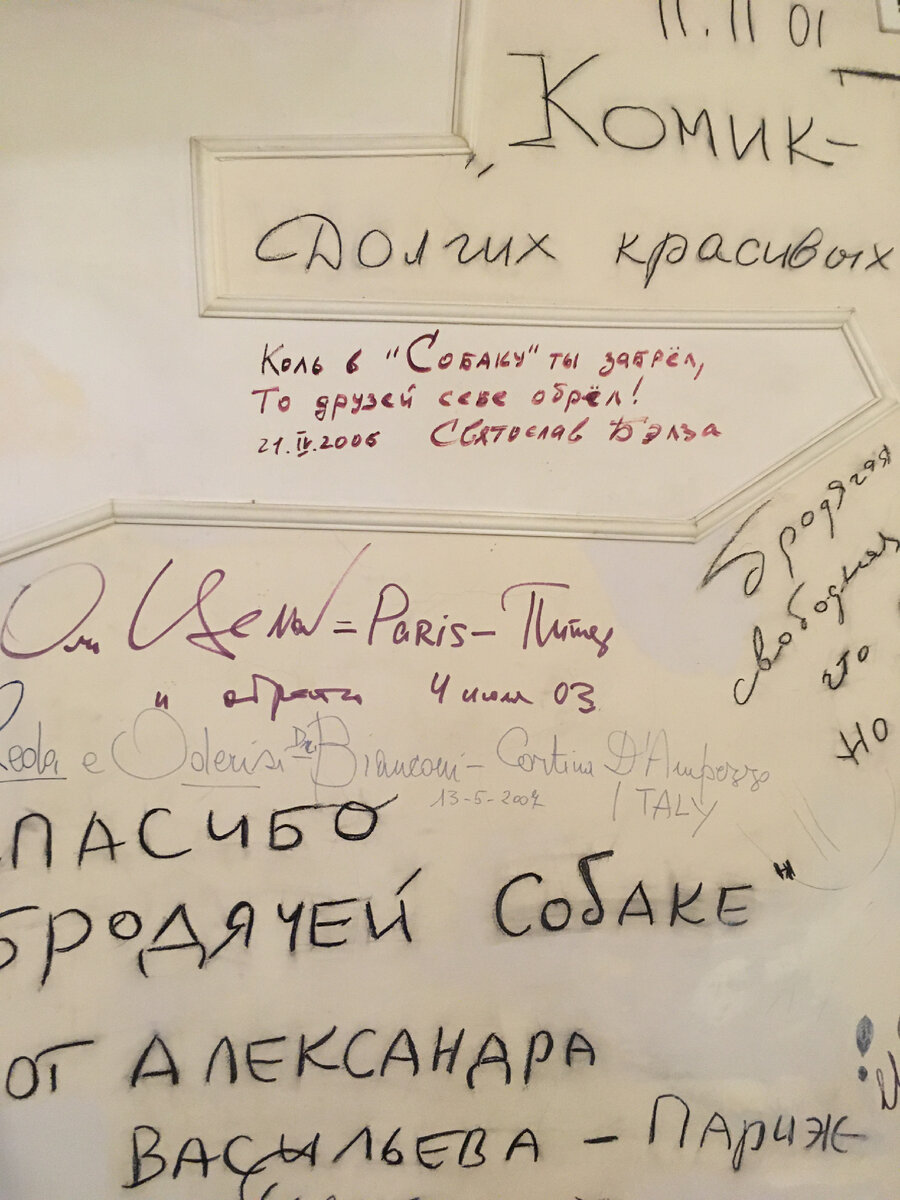 11.11 01
„Комик-
Долгих красивых
Коль в "Собаку" ты забрёл,
То друзей себе обрёл!
21.IV.2006 Святослав Бэлза
Бродячая
свободная
что
но
= Paris - Питер
и обратно 4 июля 03
Leda e Oderisi Bianconi - Cortina D'Ampezzo
13-5-2002 ITALY
СПАСИБО
БРОДЯЧЕЙ СОБАКЕ"
ОТ АЛЕКСАНДРА
ВАСИЛЬЕВА - ПАРИЖ